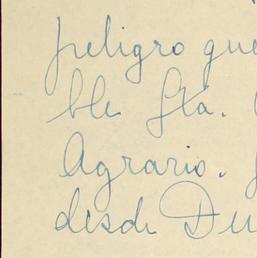 peligro que
ble Sta.
Agrario.
desde Du